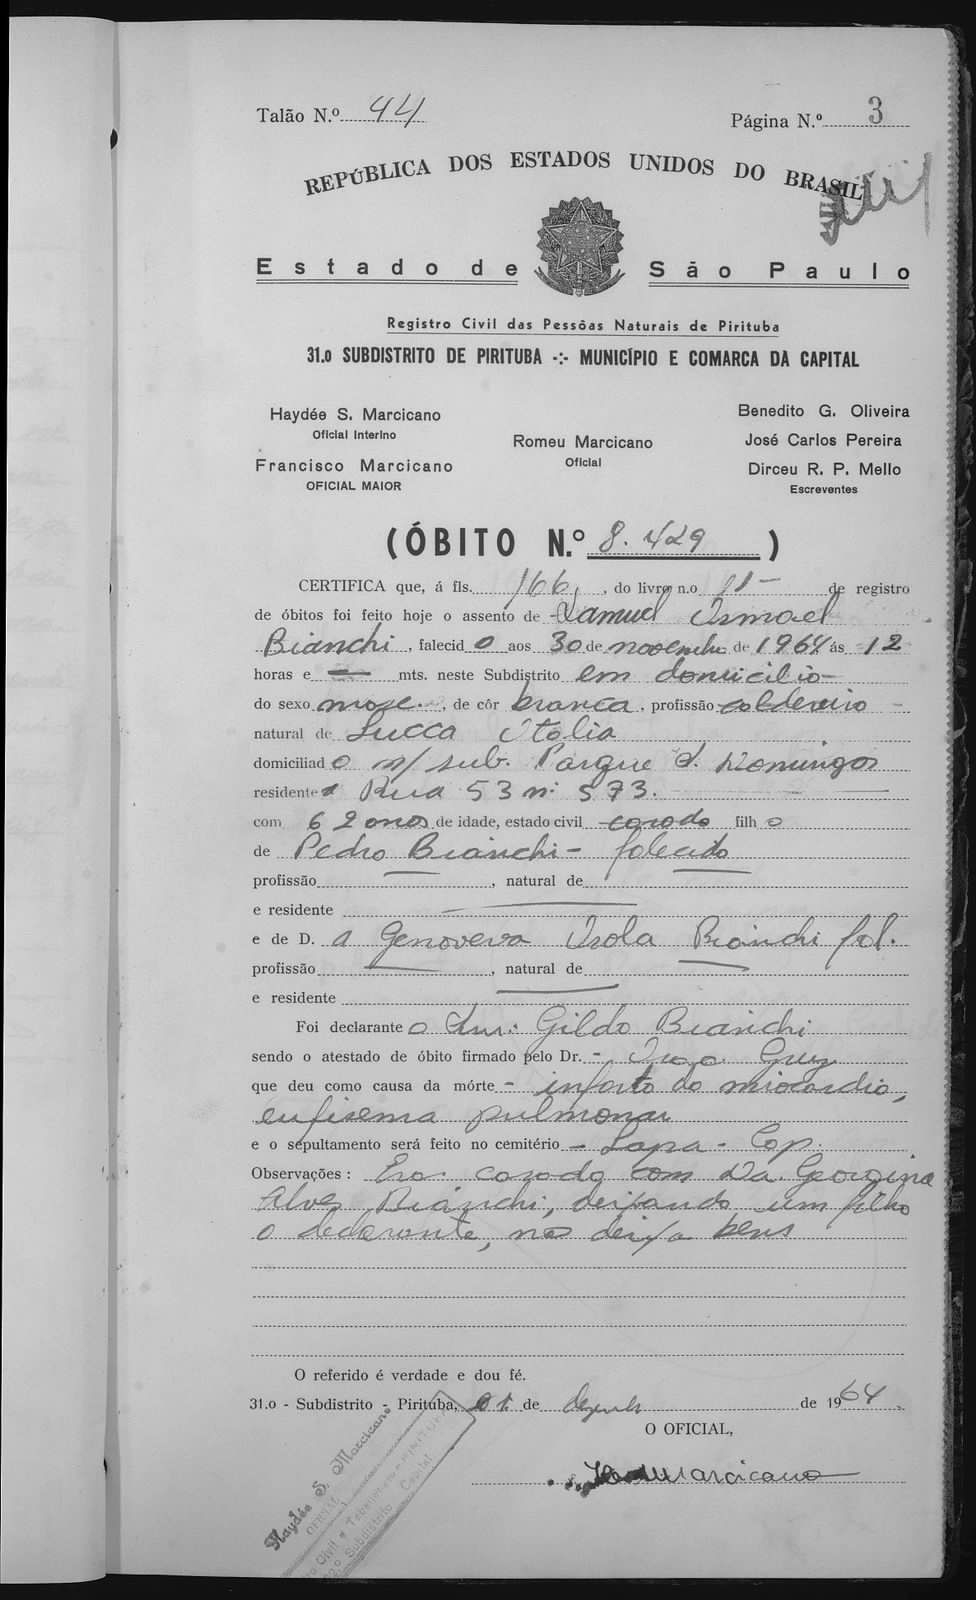 Talão N.º 44
Página N.º 3
REPÚBLICA DOS ESTADOS UNIDOS DO BRASIL
Estado de São Paulo
Registro Civil das Pessôas Naturais de Pirituba
31.o SUBDISTRITO DE PIRITUBA -:- MUNICÍPIO E COMARCA DA CAPITAL
Haydée S. Marcicano
Oficial Interino
Francisco Marcicano
OFICIAL MAIOR
Romeu Marcicano
Oficial
Benedito G. Oliveira
José Carlos Pereira
Dirceu R. P. Mello
Escreventes
(ÓBITO N.º 8.429 )
CERTIFICA que, á fls. 166, , do livro n.o 11 - de registro
de óbitos foi feito hoje o assento de Samuel Ismael
Bianchi , falecid o aos 30 de novembro de 1964 ás 12
horas e — mts. neste Subdistrito em domicilio -
do sexo masc. , de côr branca , profissão caldeireiro -
natural de Lucca Italia
domiciliad o n/ sub. Parque S. Domingos
residente a Rua 53 n. 573.
com 62 anos de idade, estado civil casado filh o
de Pedro Bianchi - falecido
profissão , natural de
e residente
e de D. a Genoveva Isola Bianchi fal.
profissão , natural de
e residente
Foi declarante o Snr. Gildo Bianchi
sendo o atestado de óbito firmado pelo Dr. -
que deu como causa da mórte - infarto do miocardio,
enfisema pulmonar
e o sepultamento será feito no cemitério - Lapa - Cap.
Observações : Era casado com Da. Georgina
Alves Bianchi, deixando um filho
o declarante, não deixa bens
O referido é verdade e dou fé.
31.o - Subdistrito - Pirituba, 01 de dezembro de 1964
O OFICIAL,
Marcicano
Haydée S. Marcicano
OFICIAL
Civil e Tabelionato - PIRITUBA
Subdistrito Capital